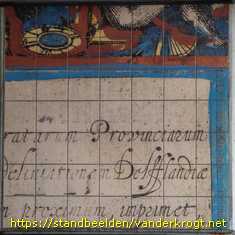 ratarum Provinciarum
delineationem Delfflandiæ
n proximum imprimet
https://standbeelden/vanderkrogt.net